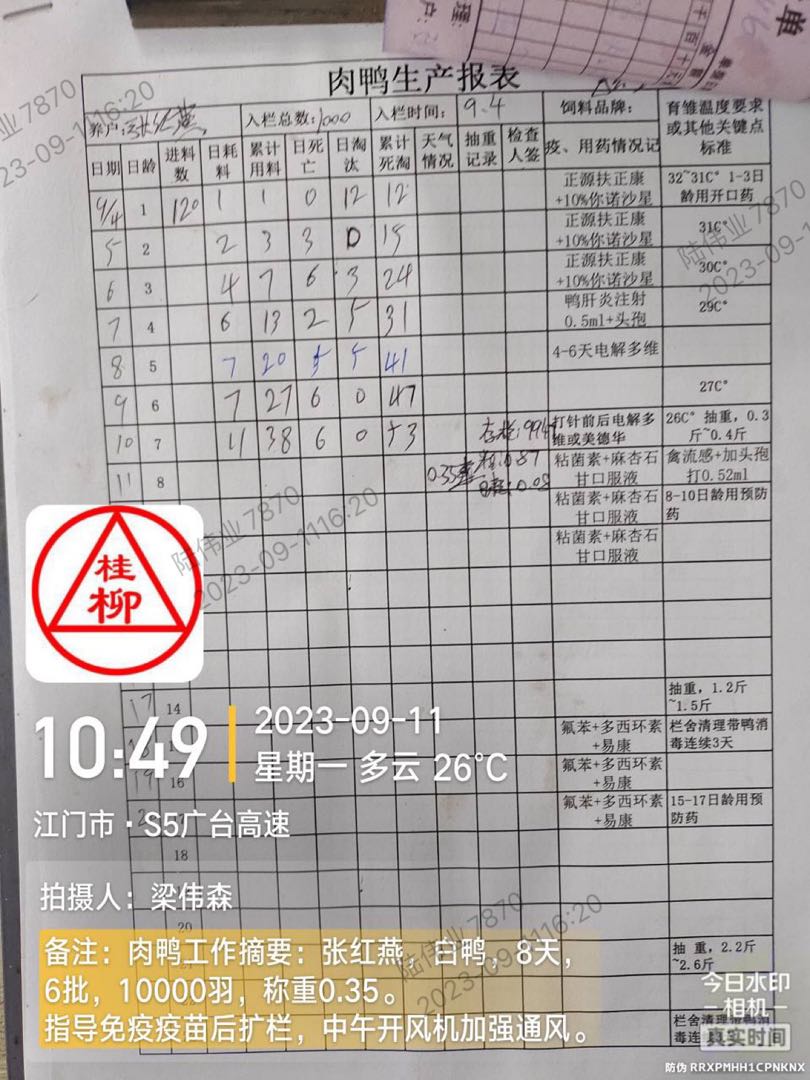 单
肉鸭生产报表
养户:张红燕 入栏总数:1000 入栏时间:9.4 饲料品牌: 育雏温度要求或其他关键点标准
日期 日龄 进料数 日耗料 累计用料 日死亡 日淘汰 累计死淘 天气情况 抽重记录 检查人签 疫、用药情况记
9/4 1 120 1 1 0 12 12 正源扶正康+10%你诺沙星 32~31C° 1-3日龄用开口药
5 2 2 3 3 0 15 正源扶正康+10%你诺沙星 31C°
6 3 4 7 6 3 24 正源扶正康+10%你诺沙星 30C°
7 4 6 13 2 5 31 鸭肝炎注射0.5ml+头孢 29C°
8 5 7 20 5 5 41 4-6天电解多维
9 6 7 27 6 0 47 27C°
10 7 11 38 6 0 53 打针前后电解多维或美德华 26C° 抽重,0.3斤~0.4斤
11 8 0.35 粘菌素+麻杏石甘口服液 禽流感+加头孢打0.52ml
粘菌素+麻杏石甘口服液 8-10日龄用预防药
粘菌素+麻杏石甘口服液
17 14 抽重,1.2斤~1.5斤
氟苯+多西环素+易康 栏舍清理带鸭消毒连续3天
19 16 氟苯+多西环素+易康
氟苯+多西环素+易康 15-17日龄用预防药
18
20
抽 重,2.2斤~2.6斤
栏舍清理带鸭消毒连
桂
柳
10:49
2023-09-11
星期一 多云 26℃
江门市·S5广台高速
拍摄人:梁伟森
备注:肉鸭工作摘要:张红燕,白鸭,8天,
6批,10000羽,称重0.35。
指导免疫疫苗后扩栏,中午开风机加强通风。
今日水印
相机
真实时间
防伪 RRXPMHH1CPNKNX
陆伟业 7870
2023-09-11 16:20